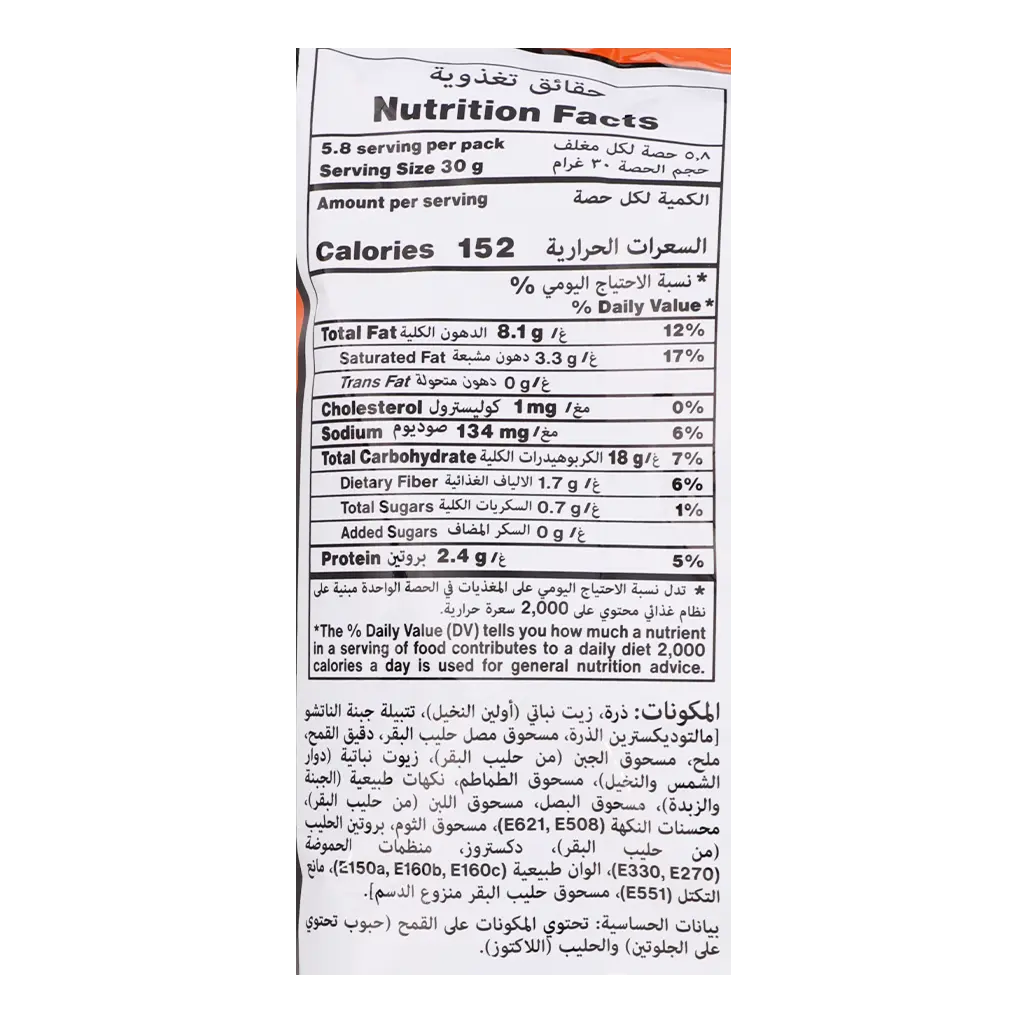 حقائق تغذوية
Nutrition Facts
5.8 serving per pack ٥,٨ حصة لكل مغلف
Serving Size 30 g حجم الحصة ٣٠ غرام
Amount per serving الكمية لكل حصة
Calories 152 السعرات الحرارية
* نسبة الاحتياج اليومي %
% Daily Value *
Total Fat الدهون الكلية 8.1 g /غ 12%
Saturated Fat دهون مشبعة 3.3 g /غ 17%
Trans Fat دهون متحولة 0 g/غ
Cholesterol كوليسترول 1 mg /مغ 0%
Sodium صوديوم 134 mg /مغ 6%
Total Carbohydrate الكربوهيدرات الكلية 18 g/غ 7%
Dietary Fiber الالياف الغذائية 1.7 g /غ 6%
Total Sugars السكريات الكلية 0.7 g/غ 1%
Added Sugars السكر المضاف 0 g /غ
Protein بروتين 2.4 g /غ 5%
* تدل نسبة الاحتياج اليومي على المغذيات في الحصة الواحدة مبنية على
نظام غذائي محتوي على 2,000 سعرة حرارية.
*The % Daily Value (DV) tells you how much a nutrient
in a serving of food contributes to a daily diet 2,000
calories a day is used for general nutrition advice.
المكونات: ذرة، زيت نباتي (أولين النخيل)، تتبيلة جبنة الناتشو
[مالتوديكسترين الذرة، مسحوق مصل حليب البقر، دقيق القمح،
ملح، مسحوق الجبن (من حليب البقر)، زيوت نباتية (دوار
الشمس والنخيل)، مسحوق الطماطم، نكهات طبيعية (الجبنة
والزبدة)، مسحوق البصل، مسحوق اللبن (من حليب البقر)،
محسنات النكهة (E621, E508)، مسحوق الثوم، بروتين الحليب
(من حليب البقر)، دكستروز، منظمات الحموضة
(E330, E270)، الوان طبيعية (E150a, E160b, E160c)، مانع
التكتل (E551)، مسحوق حليب البقر منزوع الدسم].
بيانات الحساسية: تحتوي المكونات على القمح (حبوب تحتوي
على الجلوتين) والحليب (اللاكتوز).